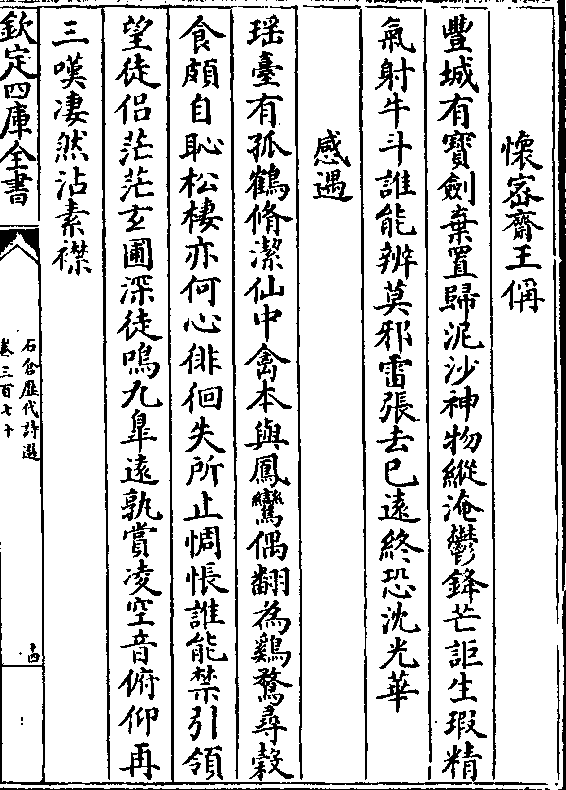 懷密齋王偁
豐城有寶劍棄置歸泥沙神物縱淹鬱鋒芒詎生瑕精
氣射牛斗誰能辨莫邪雷張去已遠終恐沈光華
感遇
瑶臺有孤鶴脩潔仙中禽本與鳳鸞偶翻為鷄鶩尋榖
食頗自恥松棲亦何心徘徊失所止惆悵誰能禁引領
望徒侣茫茫玄圃深徒鳴九臯遠孰賞凌空音俯仰再
三嘆凄然沾素襟
欽定四庫全書
石倉歷代詩選
卷三百七十